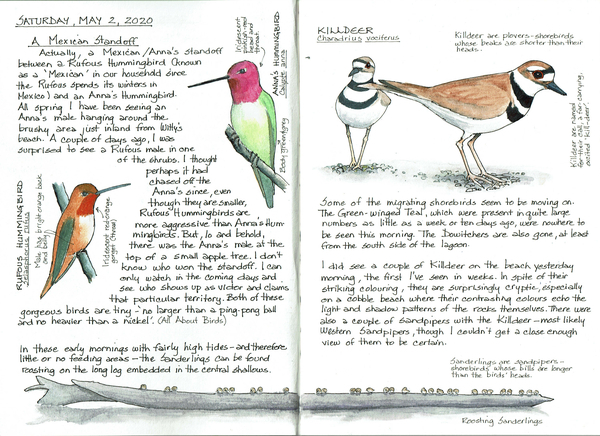 SATURDAY, MAY 2, 2020
A MEXICAN STANDOFF
Actually, a Mexican/Anna's standoff
between a Rufous Hummingbird (known
as a 'Mexican' in our household since
the Rufous spends its winters in
Mexico) and an Anna's Hummingbird.
All spring I have been seeing an
Anna's male hanging around the
brushy area just inland from Witty's
beach. A couple of days ago, I was
surprised to see a Rufous male in one
of the shrubs. I thought
perhaps it had
chased off the
Anna's since, even
though they are smaller,
Rufous Hummingbirds are
more aggressive than Anna's Hum
mingbirds. But, lo and behold,
there was the Anna's male at the
top of a small apple tree. I don't
know who won the standoff. I can
only watch in the coming days and
see who shows up as victor and claims
that particular territory. Both of these
gorgeous birds are tiny - 'no larger than a ping-pong ball
and no heavier than a nickel'. (All About Birds)
Iridescent
pinkish-red
head and
throat.
ANNA'S HUMMINGBIRD
Calypte anna
Body green/grey
RUFOUS HUMMINGBIRD
Selasphorus rufus
Male has bright orange back
and belly
Iridescent red-orange
gorget (throat)
In these early mornings with fairly high tides - and therefore
little or no feeding areas - the Sanderlings can be found
roosting on the long log embedded in the central shallows.
KILLDEER
Charadrius vociferus
Killdeer are plovers - shorebirds
whose beaks are shorter than their
heads.
Killdeer are named
for their call, a far carrying,
excited 'kill-deer'.
Some of the migrating shorebirds seem to be moving on.
The Green-winged Teal, which were present in quite large
numbers as little as a week or ten days ago, were nowhere to
be seen this morning. The Dowitchers are also gone, at least
from the south side of the lagoon.
I did see a couple of Killdeer on the beach yesterday
morning, the first I've seen in weeks. In spite of their
striking colouring, they are surprisingly cryptic, especially
on a cobble beach where their contrasting colours echo the
light and shadow patterns of the rocks themselves. There were
also a couple of Sandpipers with the Killdeer - most likely
Western Sandpipers, though I couldn't get a close enough
view of them to be certain.
Sanderlings are sandpipers -
shorebirds whose bills are longer
than the birds' heads.
Roosting Sanderlings